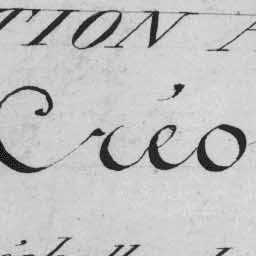 TION A
Créo